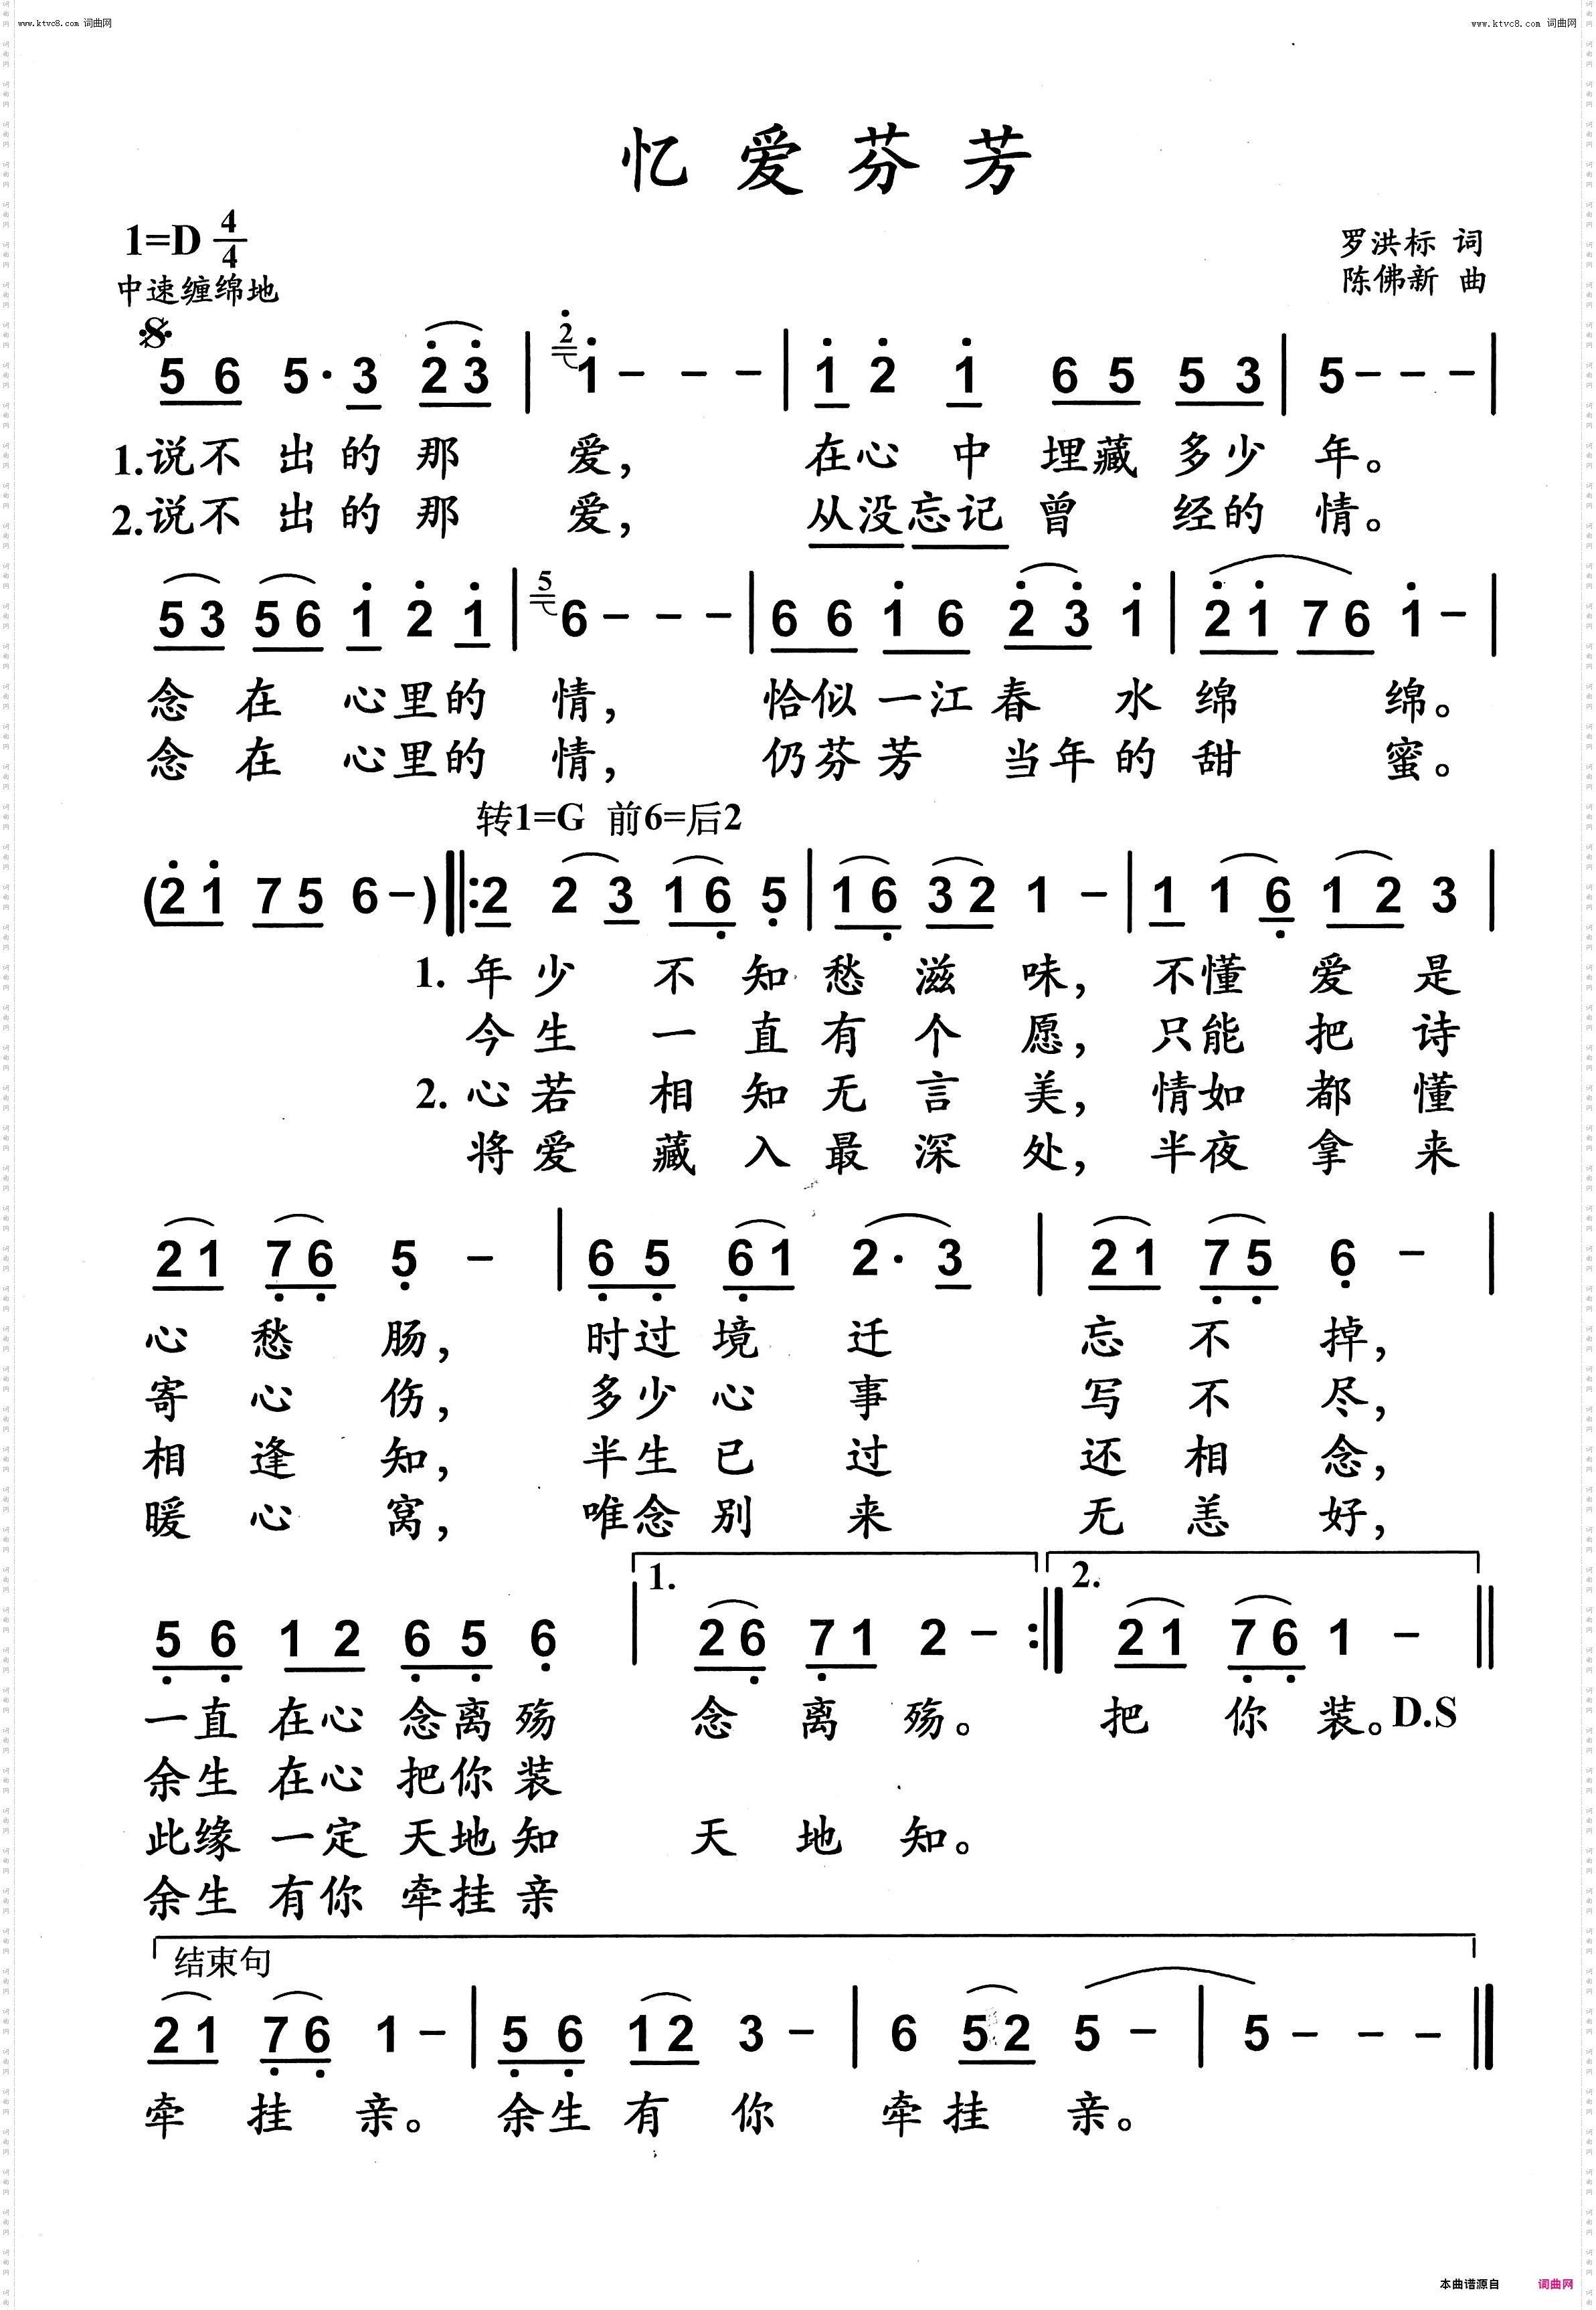 www.ktvc8.com 词曲网 www.ktvc8.com 词曲网
忆爱芬芳
1=D 4/4
罗洪标 词
中速缠绵地
陈佛新 曲
5 6 5· 3 2 3 | 2 1 - - - | 1 2 1 6 5 5 3 | 5 - - - |
1.说不出的那爱，在心中埋藏多少年。
2.说不出的那爱，从没忘记曾经的情。
5 3 5 6 1 2 1 | 5 6 - - - | 6 6 1 6 2 3 1 | 2 1 7 6 1 - |
念在心里的情，恰似一江春水绵绵。
念在心里的情，仍芬芳当年的甜蜜。
转1=G 前6=后2
(2 1 7 5 6 -) ‖: 2 2 3 1 6 5 | 1 6 3 2 1 - | 1 1 6 1 2 3 |
1. 年少不知愁滋味，不懂爱是
今生一直有个愿，只能把诗
2. 心若相知无言美，情如都懂
将爱藏入最深处，半夜拿来
2 1 7 6 5 - | 6 5 6 1 2· 3 | 2 1 7 5 6 - |
心愁肠，时过境迁忘不掉，
寄心伤，多少心事写不尽，
相逢知，半生已过还相念，
暖心窝，唯念别来无恙好，
1. 2.
5 6 1 2 6 5 6 | 2 6 7 1 2 - :‖ 2 1 7 6 1 - ‖
一直在心念离殇 念离殇。 把你装。D.S
余生在心把你装
此缘一定天地知 天地知。
余生有你牵挂亲
结束句
2 1 7 6 1 - | 5 6 1 2 3 - | 6 5 2 5 - | 5 - - - ‖
牵挂亲。余生有你牵挂亲。
本曲谱源自 词曲网